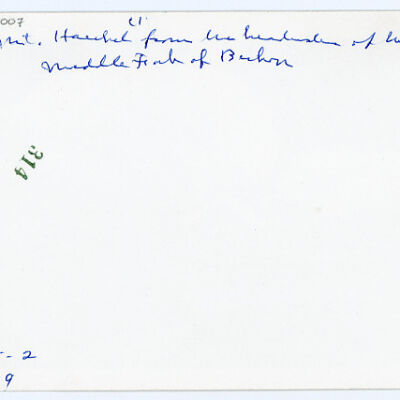 007
Mt. Haeckel from the headwaters of the
Middle Fork of Bishop
314
- 2
9